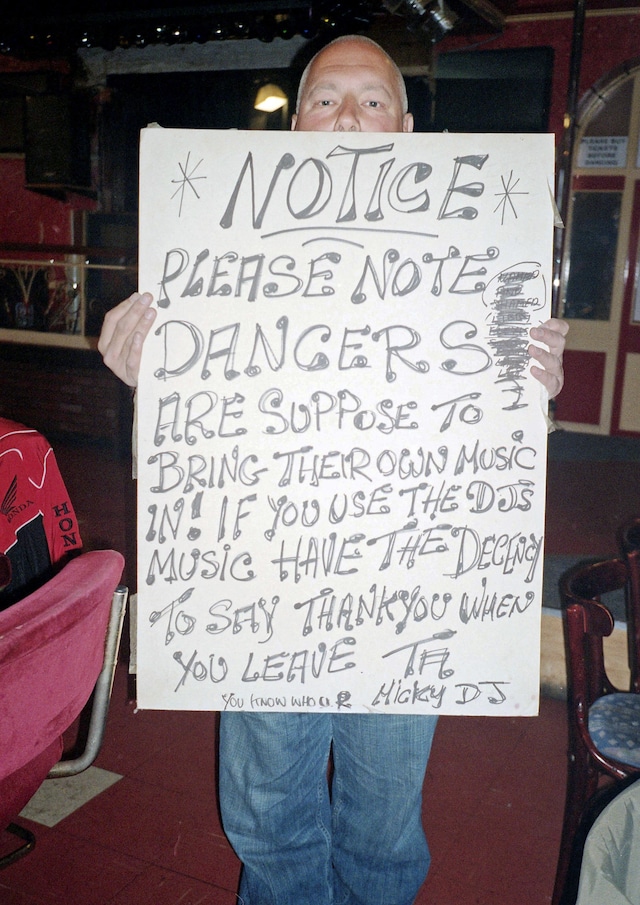 * NOTICE *
PLEASE NOTE
DANCERS
ARE SUPPOSE TO
BRING THEIR OWN MUSIC
IN! IF YOU USE THE DJS
MUSIC HAVE THE DECENCY
TO SAY THANKYOU WHEN
YOU LEAVE TA
YOU KNOW WHO U R MICKY DJ
PLEASE BUY
TICKETS
BEFORE
DANCING
HONDA
HON